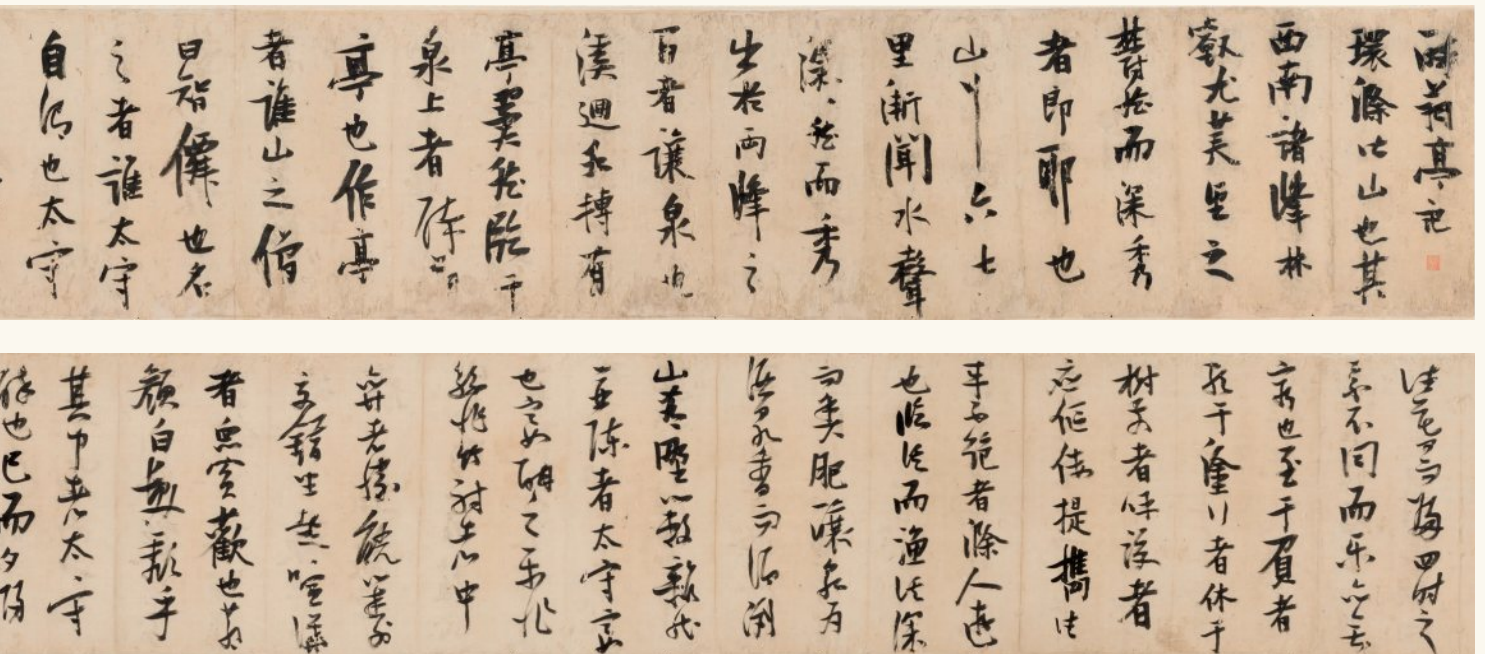 醉翁亭記
環滁皆山也其
西南諸峰林
壑尤美望之
蔚然而深秀
者即耶也
山行六七
里漸聞水聲
潺潺然而秀
出於兩峰之
間者讓泉也
溪迴路轉有
亭翼然臨于
泉上者醉翁
亭也作亭
者誰山之僧
曰智僊也名
之者誰太守
自謂也太守
往暮而歸四時之
景不同而乐亦無
窮也至于負者
歌于塗行者休于
樹前者呼後者
應傴僂提攜往
來不絕者滁人遊
也臨溪而漁溪深
而魚肥釀泉為
酒泉香而酒洌
山肴野蔌雜然
而陳者太守宴
也宴酣之乐非
絲非竹射者中
弈者勝觥籌
交錯坐起喧譁
者眾賓歡也蒼
顏白髮頹乎
其中者太守
醉也已而夕陽